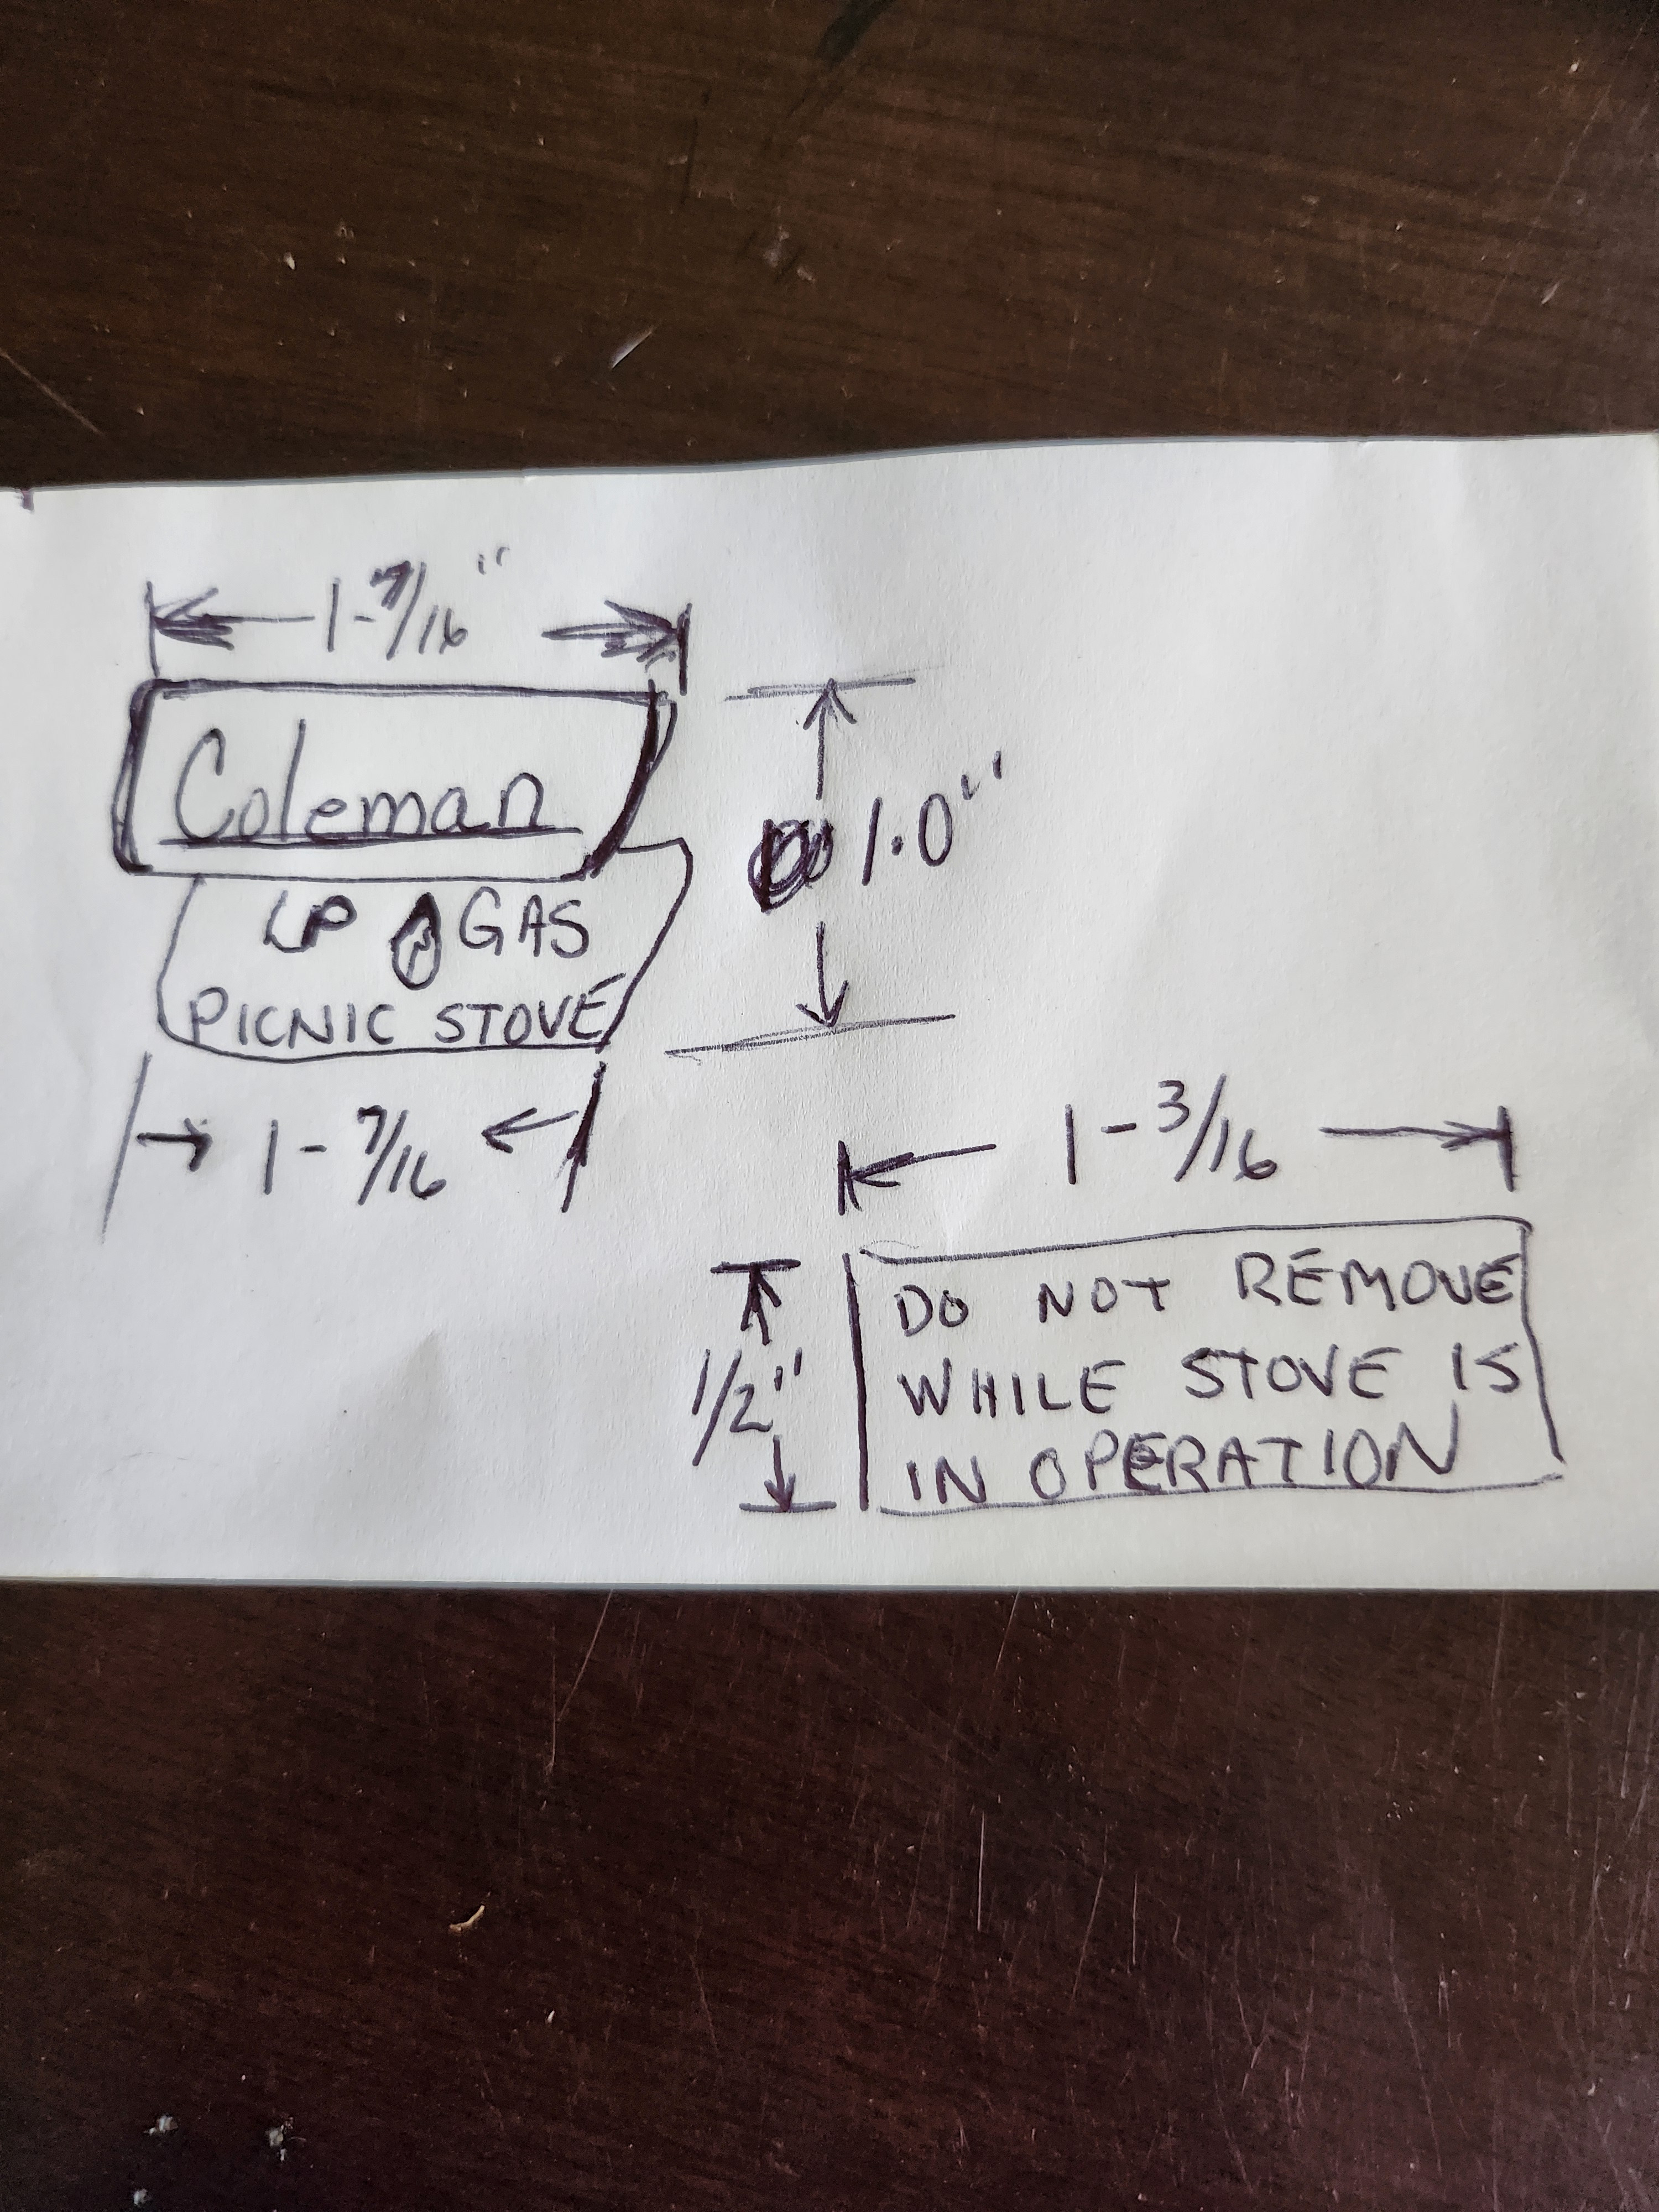 1-7/16"
Coleman
LP GAS
PICNIC STOVE
1.0"
1-7/16
1-3/16
1/2"
DO NOT REMOVE
WHILE STOVE IS
IN OPERATION